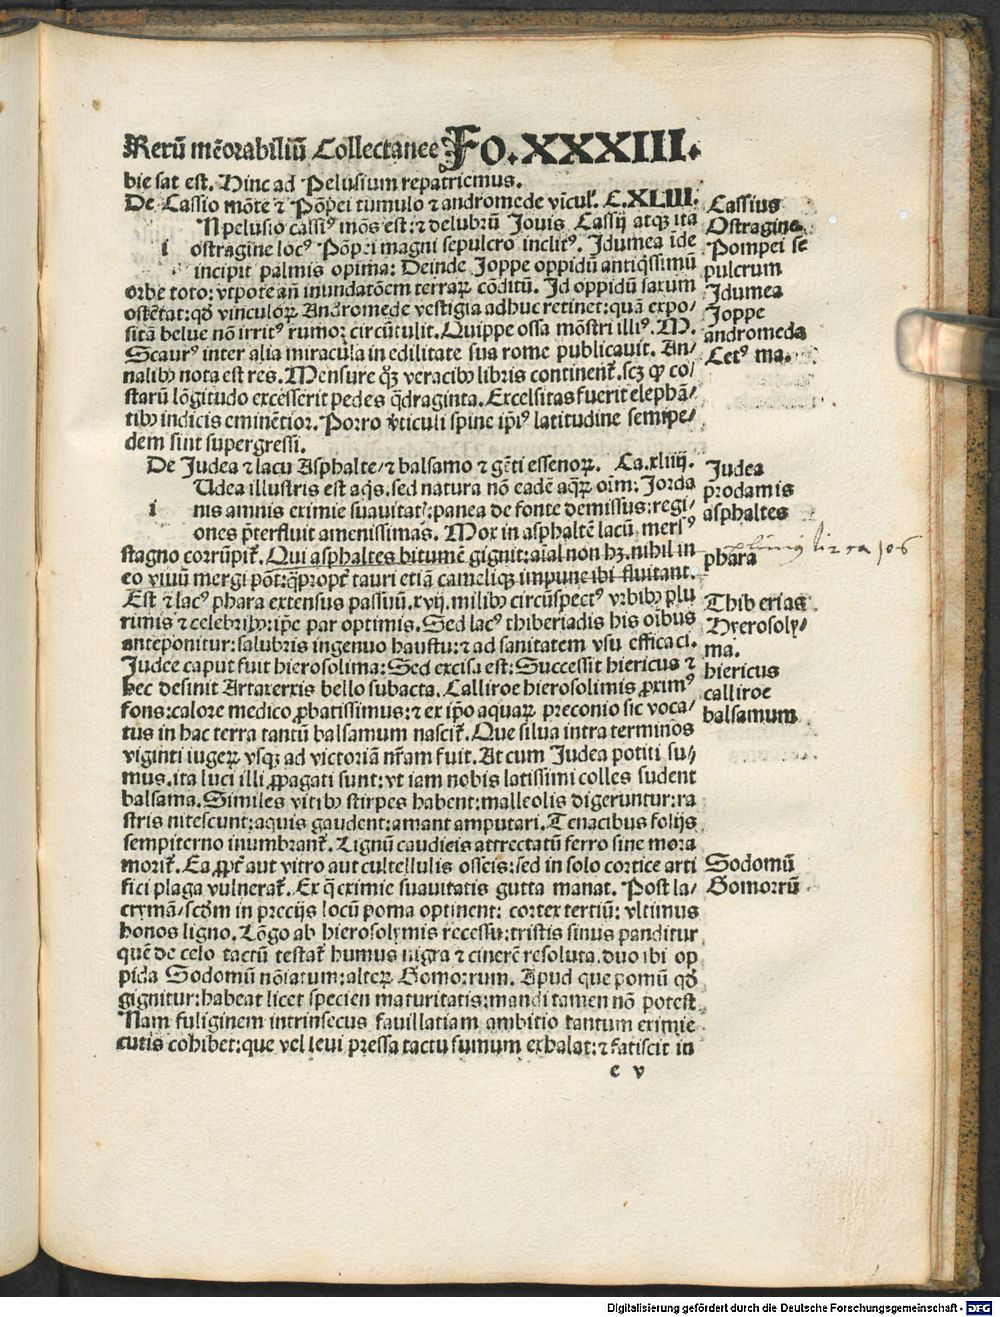 Rerū mēorabiliū Collectanee Fo. XXXIII.
bie sat est. Hinc ad Pelusium repatriemus.
De Cassio mōte ⁊ Pōpei tumulo ⁊ andromede vīcul'. C. XLIII.
N pelusio cassiꝰ mōs est: ⁊ delubrū Jouis Cassij atqꝫ ita
i ostragine locꝰ Pōpei magni sepulcro inclitꝰ. Idumea īde
incipit palmis opima: Deinde Joppe oppidū antiq̄ssimū
orbe toto: vtpote an̄ inundatōem terraꝝ cōditū. Id oppidū saxum
ostētat: qđ vinculoꝝ Andromede vestigia adhuc retinet: quā expo/
sitā belue nō irritꝰ rumor circūtulit. Quippe ossa mōstri illiꝰ. M.
Scaurꝰ inter alia miracula in edilitate sua rome publicauit. An/
nalibꝰ nota est res. Mensure qꝫ veracibꝰ libris continent᷑. scꝫ ꝙ co/
starū lōgitudo excesserit pedes q̄draginta. Excelsitas fuerit elephā/
tibꝰ indicis eminētior. Porro v̄ticuli spine ip̄iꝰ latitudine semipe/
dem sint supergressi.
De Judea ⁊ lacu Asphalte/ ⁊ balsamo ⁊ gēti essenoꝝ. Ca. xliiij.
Udea illustris est aq̄s. sed natura nō eadē aq̄ꝝ oīm: Jorda
i nis amnis eximie suauitatꝭ: panea de fonte demissus: regi/
ones p̄terfluit amenissimas. Mox in asphaltē lacū mersꝰ
stagno corrūpit᷑. Qui asphaltes bitumē gignit: aīal non hꝫ. nihil in
eo viuū mergi pōt: q̄propt᷑ tauri etiā camelīqꝫ impune ibi fluitant.
Est ⁊ lacꝰ phara extensus passuū. xvij. milibꝰ circūspectꝰ vrbibꝰ plu
rimis ⁊ celebribꝰ: ip̄e par optimis. Sed lacꝰ thiberiadis his oībus
anteponitur: salubris ingenuo haustu: ⁊ ad sanitatem vsu efficaci.
Judee caput fuit hierosolima: Sed excisa est: Successit hiericus ⁊
hec desinit Artaxerxis bello subacta. Calliroe hierosolimis ꝓximꝰ
fons: calore medico ꝓbatissimus: ⁊ ex ip̄o aquaꝝ preconio sic voca/
tus in hac terra tantū balsamum nascit᷑. Que silua intra terminos
viginti iugeꝝ vsqꝫ ad victoriā nr̄am fuit. At cum Judea potiti su/
mus. ita luci illi ꝓpagati sunt: vt iam nobis latissimi colles sudent
balsama. Similes vitibꝰ stirpes habent: malleolis digeruntur: ra
stris nitescunt: aquis gaudent: amant amputari. Tenacibus folijs
sempiterno inumbrant᷑. Lignū caudicis attrectatū ferro sine mora
morit᷑. Ea ꝓpt᷑ aut vitro aut cultellulis osseis: sed in solo cortice arti
fici plaga vulnerat᷑. Ex q̄ eximie suauitatis gutta manat. Post la/
crymā/ scđm in precijs locū poma optinent: cortex tertiū: vltimus
honos ligno. Lōgo ab hierosolymis recessu: tristis sinus panditur
quē de celo tactū testat᷑ humus nigra ⁊ cinerē resoluta. duo ibi op
pida Sodomū nōiatum: alteꝝ Gomorrum. Apud que pomū qđ
gignitur: habeat licet specien maturitatis: mandi tamen nō potest
Nam fuliginem intrinsecus fauillatiam ambitio tantum eximie
cutis cohibet: que vel leui pressa tactu fumum exhalat: ⁊ fatiscit in
e v
Cassius
Ostragine
Pompei se
pulcrum
Idumea
Joppe
andromeda
Cetꝰ ma.
Judea
prodamis
asphaltes
phara
Thiberias
Hyerosoly/
ma.
hiericus
calliroe
balsamum
Sodomū
Gomorrū
Digitalisierung gefördert durch die Deutsche Forschungsgemeinschaft - DFG